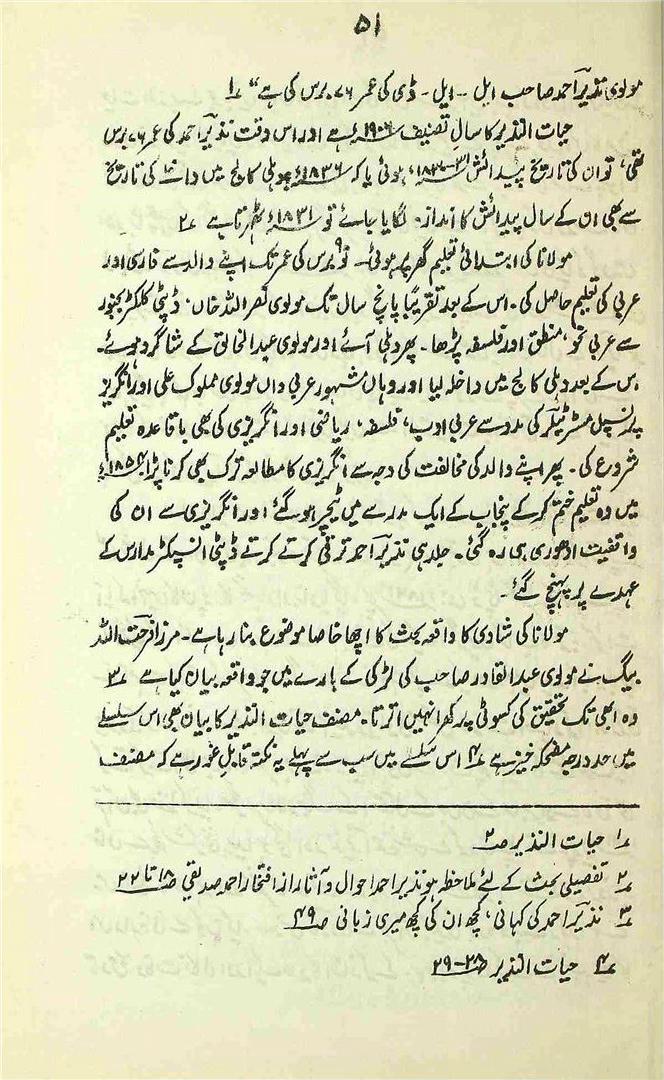 ۵۱
مولوی نذیر احمد صاحب ایل - ایل - ڈی کی عمر ۷۶ برس کی ہے“ ۱؎
حیات النذیر کا سالِ تصنیف ۱۹۰۶ء ہے اور اس وقت نذیر احمد کی عمر ۷۶ برس
تھی، تو ان کی تاریخ پیدائش ۳۱-۱۸۳۰ء ہوئی یا کہ ۱۸۳۶ء ہو دلی کالج میں داخلے کی تاریخ
سے بھی ان کے سال پیدائش کا اندازہ لگایا جائے تو ۱۸۳۱ء ٹھہرتا ہے ۲؎
مولانا کی ابتدائی تعلیم گھر پر ہوئی۔ نو ۹ برس کی عمر تک اپنے والد سے فارسی اور
عربی کی تعلیم حاصل کی۔ اس کے بعد تقریباً پانچ سال تک مولوی نصر اللہ خاں، ڈپٹی کلکٹر بجنور
سے عربی نحو، منطق اور فلسفہ پڑھا۔ پھر دہلی آئے اور مولوی عبدالخالق کے شاگرد ہوئے۔
اس کے بعد دہلی کالج میں داخلہ لیا اور وہاں مشہور عربی داں مولوی مملوک علی اور انگریز
پرنسپل مسٹر ٹیلر کی مدد سے عربی ادب، فلسفہ، ریاضی اور انگریزی کی بھی باقاعدہ تعلیم
شروع کی۔ پھر اپنے والد کی مخالفت کی وجہ سے انگریزی کا مطالعہ ترک بھی کرنا پڑا ۱۸۵۴ء
میں وہ تعلیم ختم کر کے پنجاب کے ایک مدرسے میں ٹیچر ہو گئے اور انگریزی سے ان کی
واقفیت ادھوری ہی رہ گئی۔ جلد ہی نذیر احمد ترقی کرتے کرتے ڈپٹی انسپکٹر مدارس کے
عہدے پر پہنچ گئے۔
مولانا کی شادی کا واقعہ بحث کا اچھا خاصا موضوع بنا رہا ہے۔ مرزا فرحت اللہ
بیگ نے مولوی عبدالقادر صاحب کی لڑکی کے بارے میں جو واقعہ بیان کیا ہے ۳؎
وہ ابھی تک تحقیق کی کسوٹی پر کھرا نہیں اترتا۔ مصنف حیات النذیر کا بیان بھی اس سلسلے
میں حد درجہ مضحکہ خیز ہے ۴؎ اس سلسلے میں سب سے پہلے یہ نکتہ قابلِ غور ہے کہ مصنف
۱؎ حیات النذیر صـ۲
۲؎ تفصیلی بحث کے لئے ملاحظہ ہو نذیر احمد احوال و آثار از افتخار احمد صدیقی صـ۱۸ تا ۲۲
۳؎ نذیر احمد کی کہانی، کچھ ان کی کچھ میری زبانی صـ۴۹
۴؎ حیات النذیر صـ۲۸-۲۹